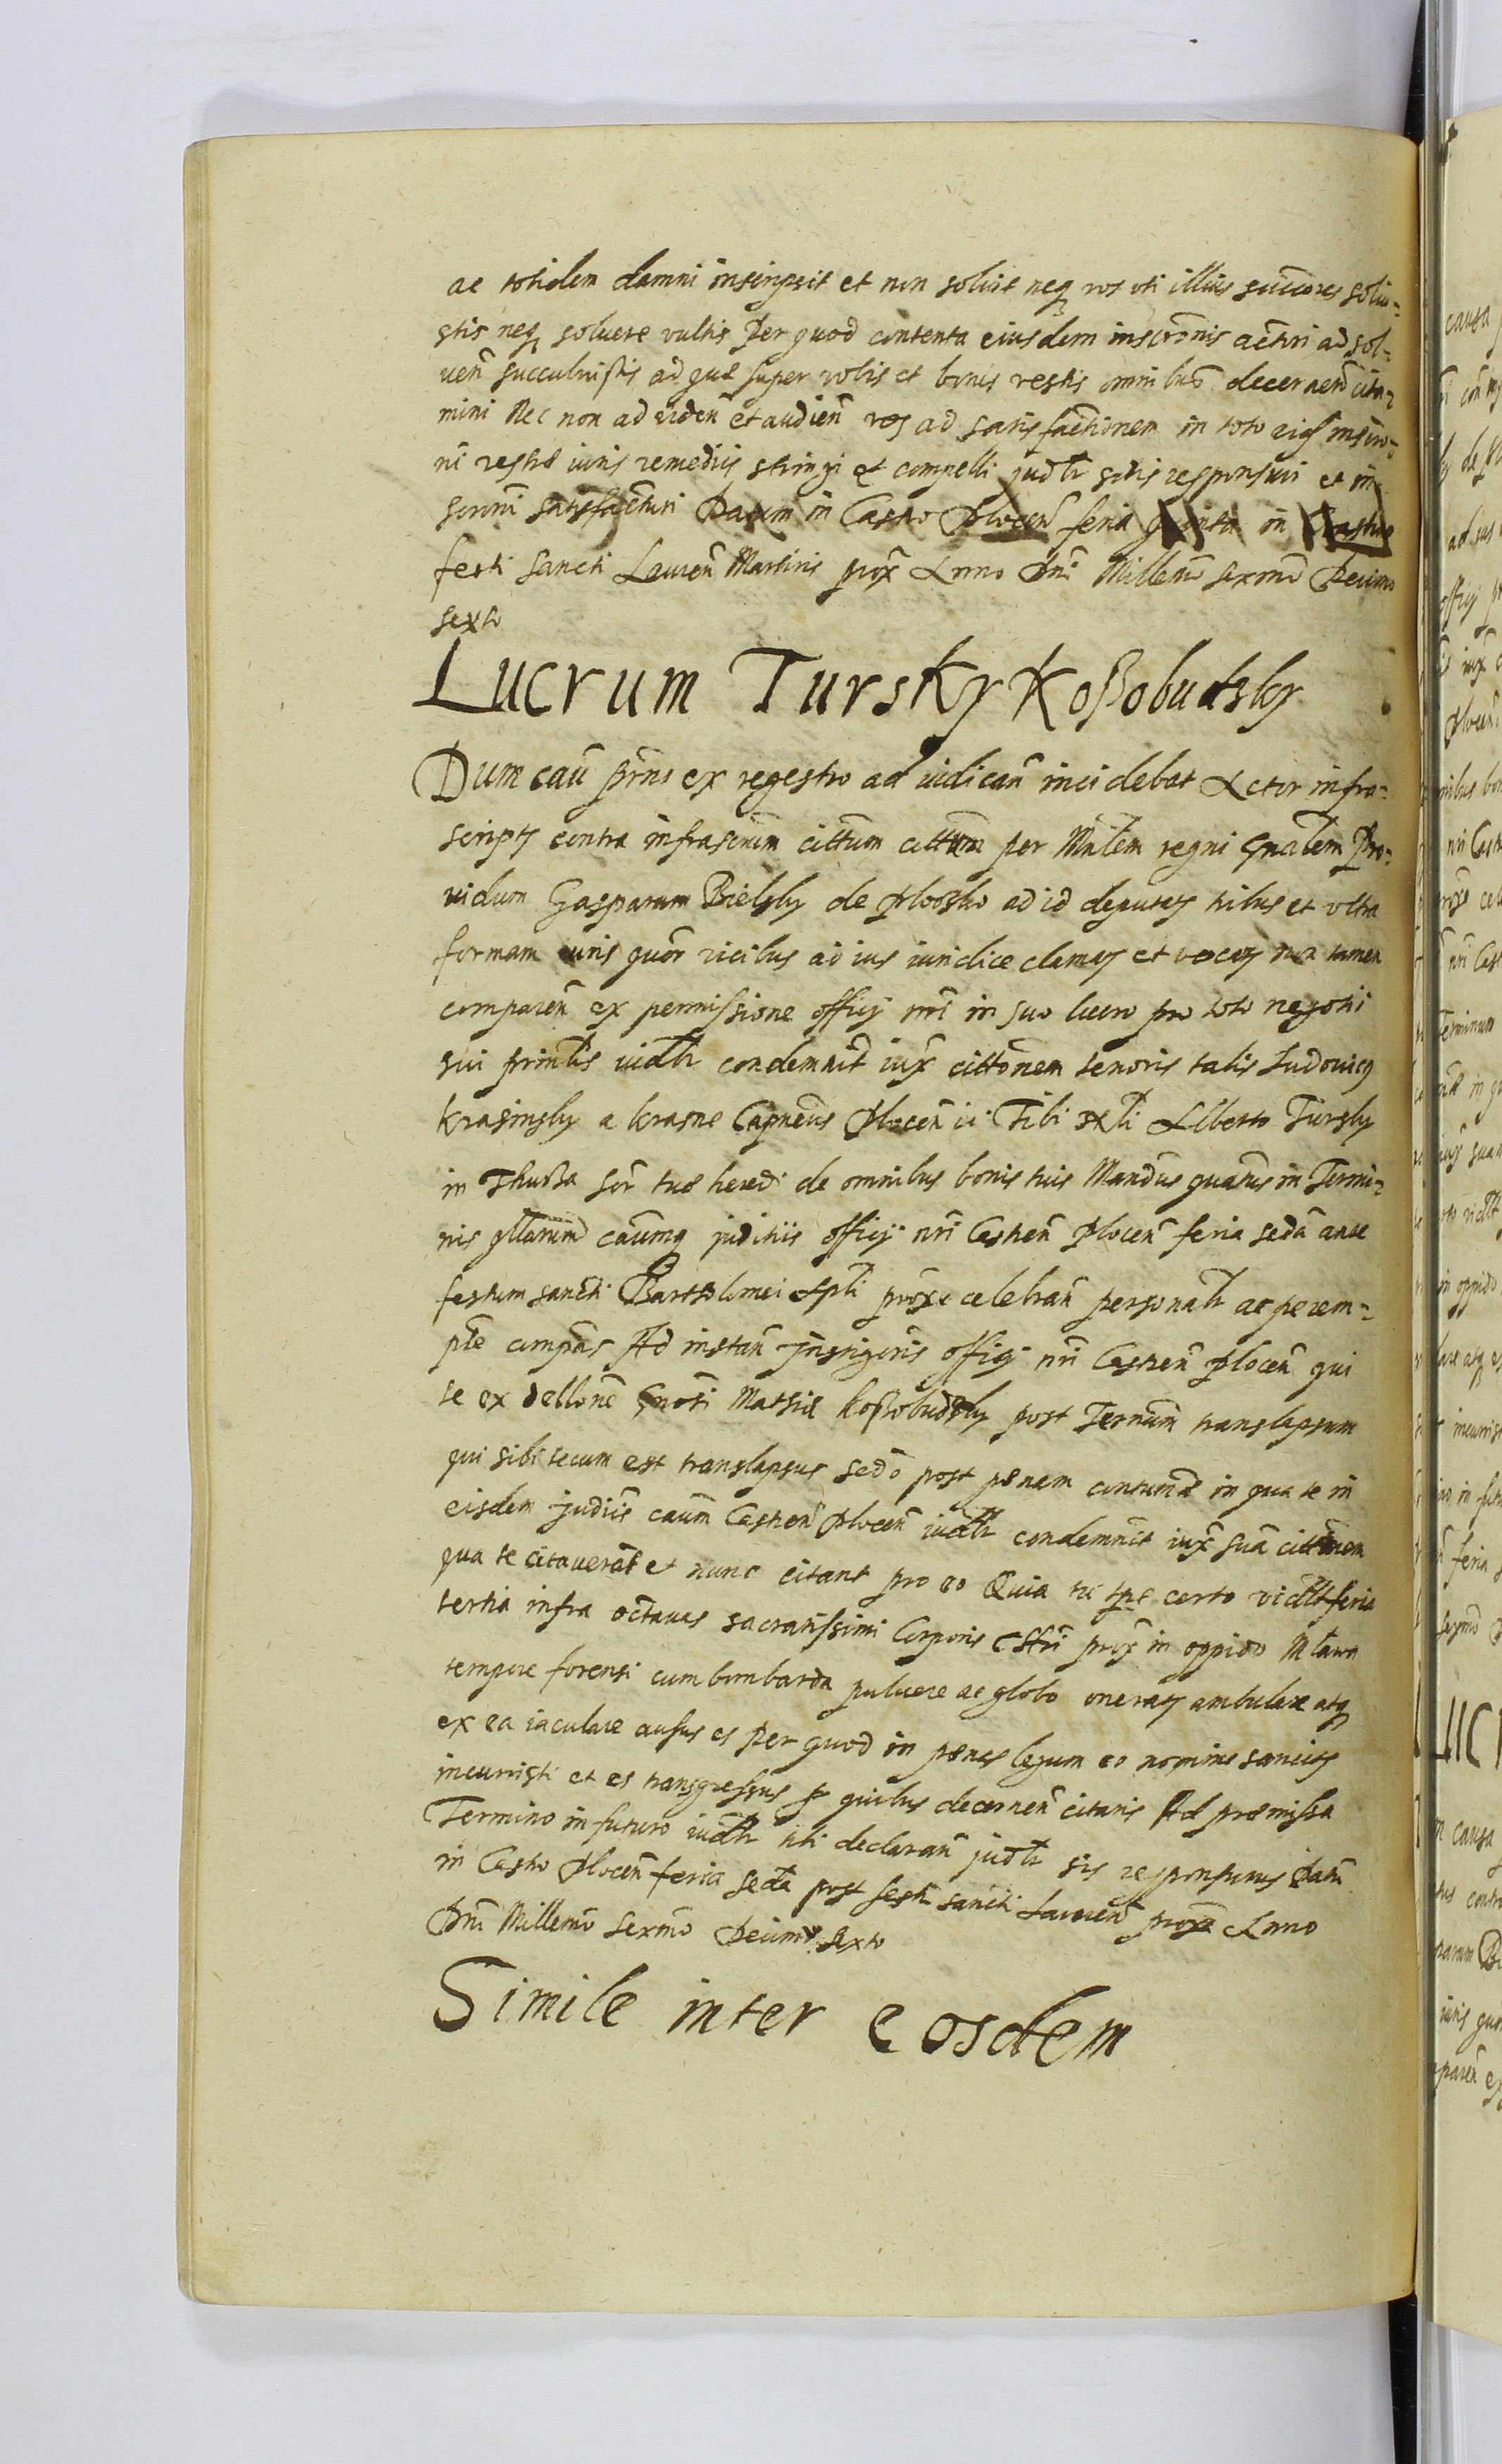 ac totidem damni inscripsit et non solvit neq vos uti illius succores solui-
stis neq soluere vultis Per quod contenta eiusdem inscronis actori ad sol-
uen succubuistis ad que super vobis et bonis vestis omnibus decernend cita-
mini Nec non ad viden et audien vos ad satisfactionem in toto eius inscro-
ni vestre iuris remediis stringi et compelli judtr sitis responsuri et in
satisfacturi Datum in Castro Plocen feria quinta in Crastino
festi sancti Lauren Martiris prox Anno Dni Millemo sexmo Decimo
sexto
Lucrum Tursky Koßobudsky
Dum cau prns ex regestro ad iudican incidebat Actor infra-
scripts contra infrascrum cittum cittum per Mnlem regni Gnalem Pro-
vidum Gasparum Bielsky de Plocsko ad id deputats tribus et ultra
formam iuris quor vicibus ad ius iuridice clamats et vocats non tamen
comparen ex permissione officy nri in suo lucro pro toto negotii
sui printis iudtr condemnit iux cittonem tenoris talis Ludovics
Krasinsky a Krasne Capneus Plocen Tibi Alberto Tursky
in Thurza tue heredi de omnibus bonis tuis Mandus quatus in Termi-
nis qllarum caumq juditiis officy nri Castren Plocen feria secda ante
festum sancti Bartholomei Apli proxe celebran personatr ac perem-
pte compas Ad instan instigoris officy nri Castren Plocen qui
te ex dellone Gnosi Mathie Koßobudsky post Termum translapsum
qui sibi tecum est translapsus sedo post penam contumae in qua te in
eisdem judiciis caum Castren Plocen iudtr condemnit iux sua cittonem
qua te citaverat et nunc citant pro eo Quia tu tpe certo vidlt feria
tertia infra octavas sacratissimi Corporis Chri prox in oppido Mlawa
tempore forensi cum bombarda pulvere ac globo onerats ambulare atq
ex ea iaculare ausus es Per quod in penas legum eo nomine sancits
incurristi et es transgressus pr quibus decernen citaris Ad premissa
Termino in futuro iudtr tibi declaran judtr sis responsurus Datu
in Castro Plocen feria secda post festu sancti Lauren proxe Anno
Dni Millemo sexmo Decimo sexto
Simile inter eosdem